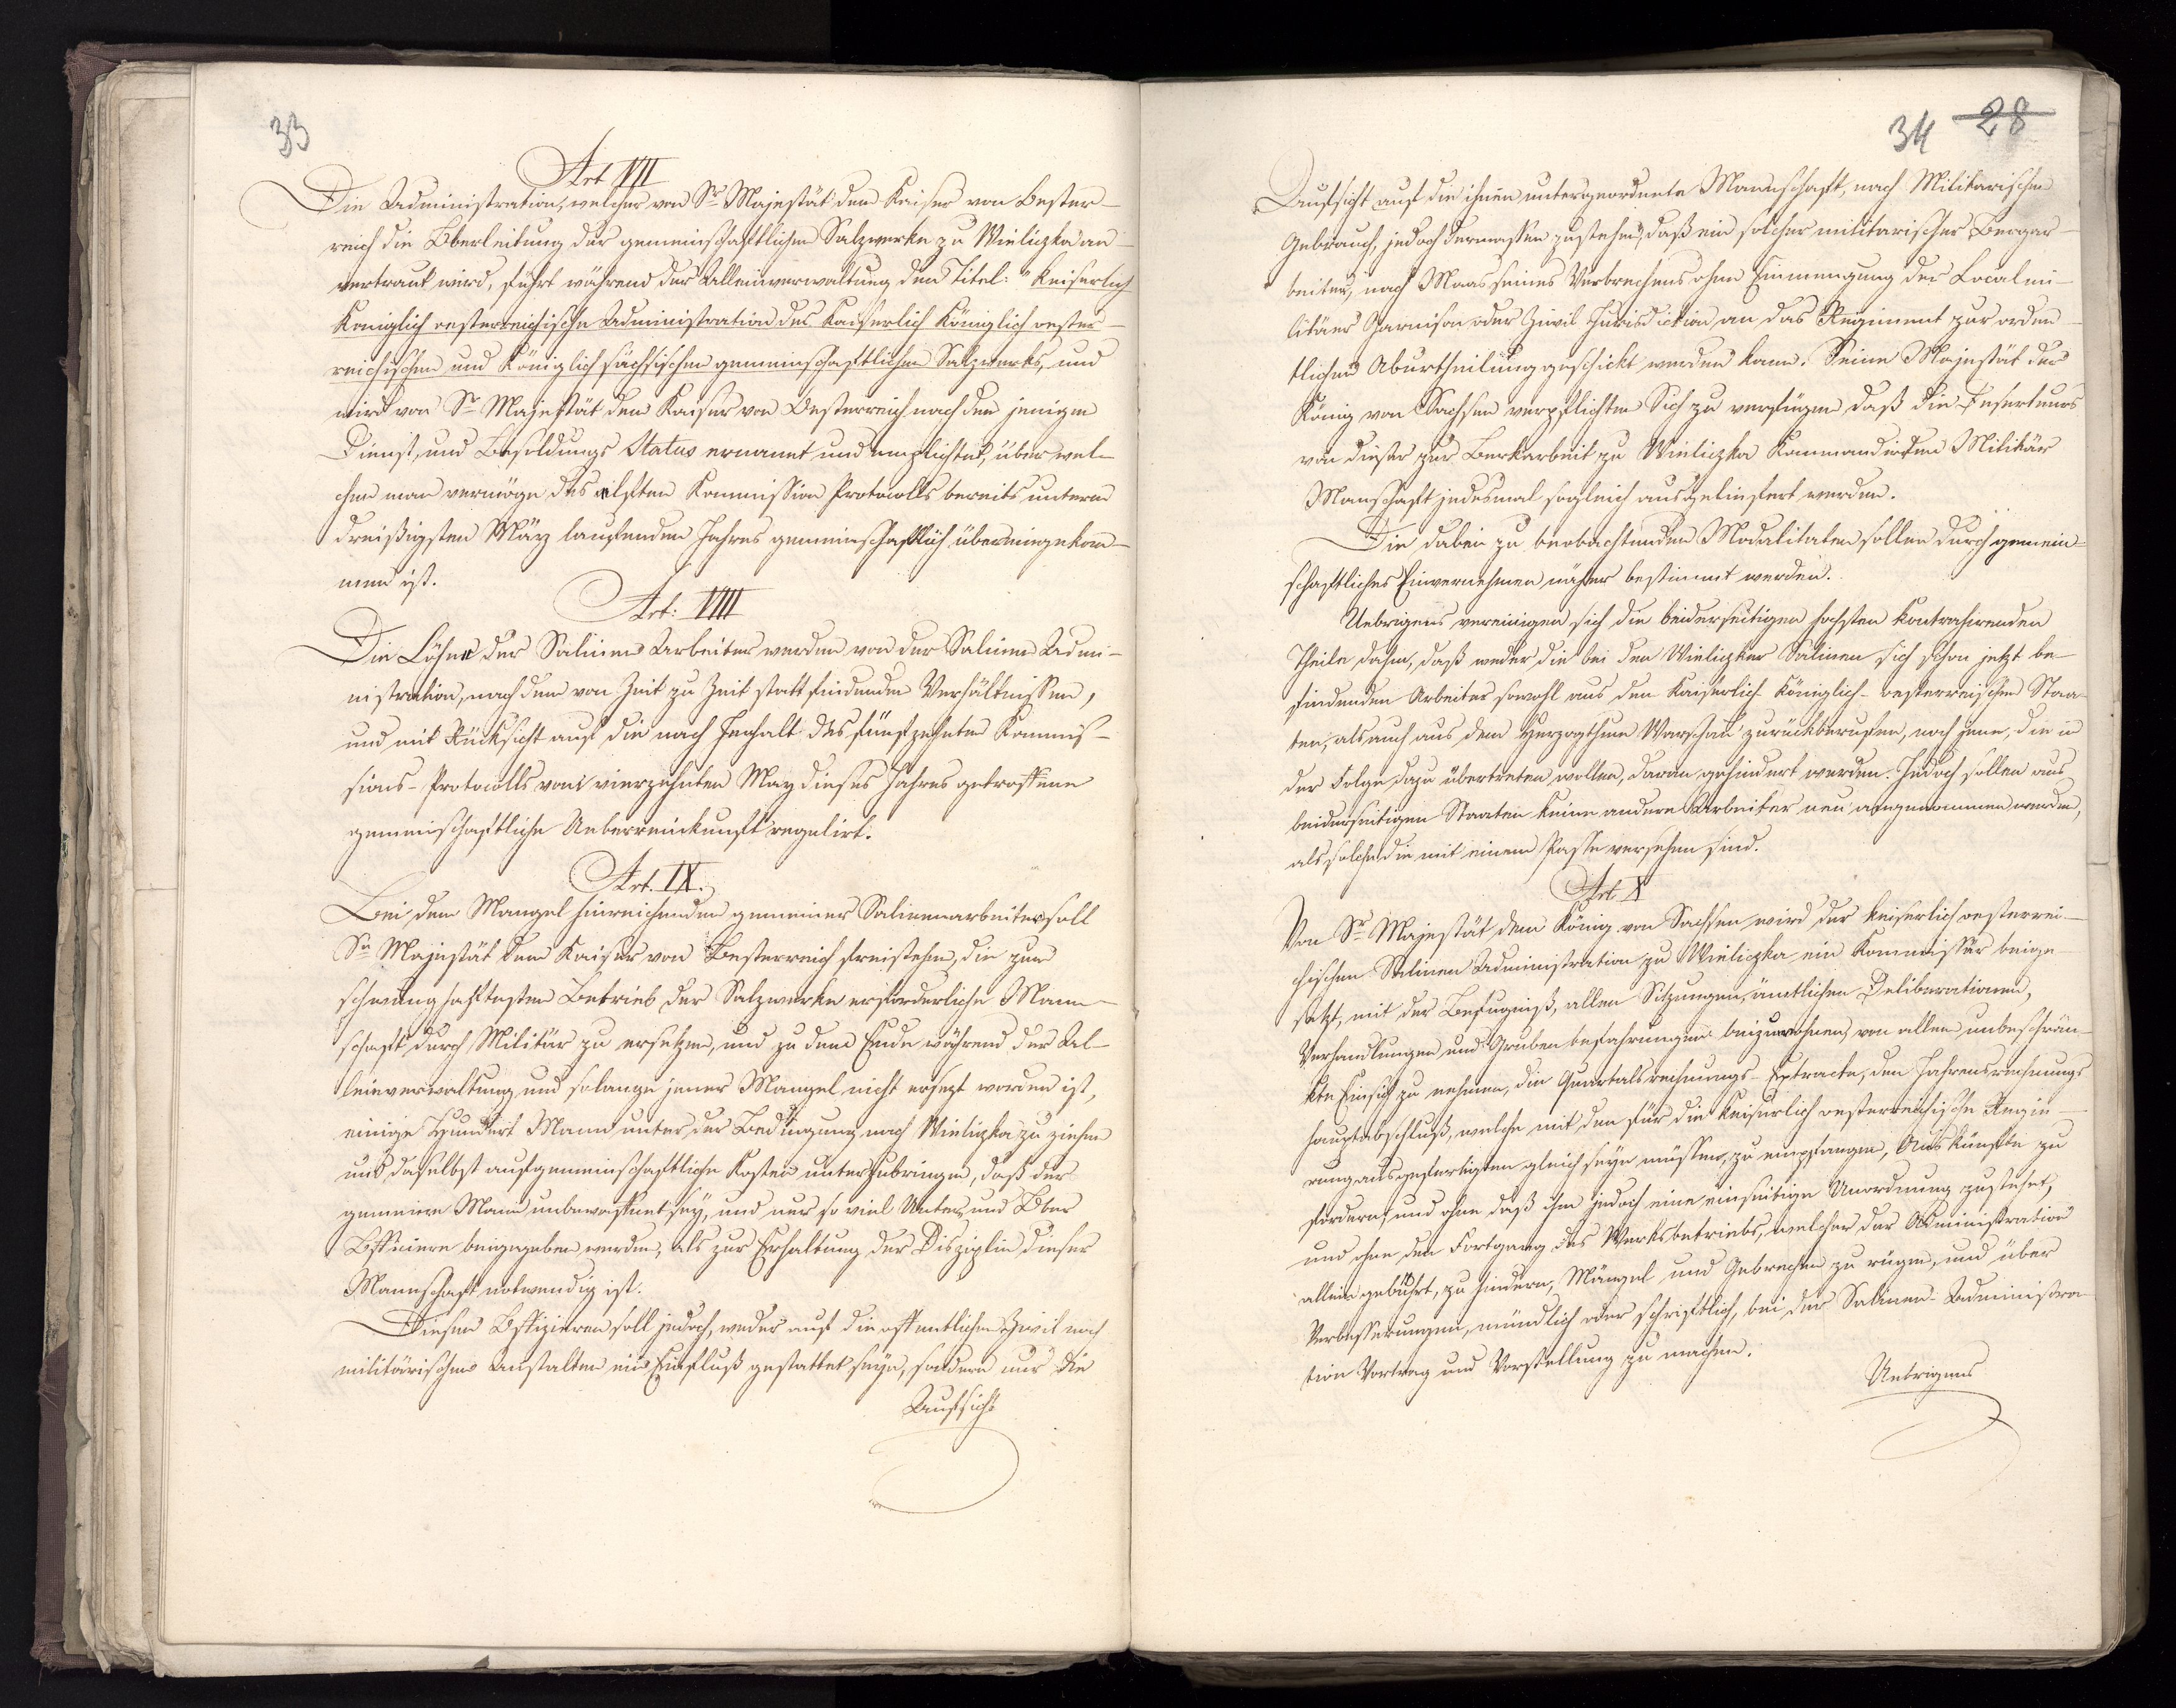 33
Art VII
Die Administration, welcher von Sr Majestät dem Kaiser von Oester-
reich die Oberleitung der gemeinschaftlichen Salzwerke zu Wieliczka an-
vertraut wird, führt während der Alleinverwaltung den Titel: "Keiserlich
Königlich oesterreichische Administration des Kaiserlich Königlich oester-
reichischen und Königlich sächsischen gemeinschaftlichen Salzwerks, und
wird von Sr Majestät dem Kaiser von Oesterreich nach dem jenigen
Dienst, und Besoldungs Status ernannt und verpflichtet, über wel-
chen man vermöge des elften Kommission Protocolls bereits unterm
dreißigsten März laufenden Jahres gemeinschaftlich übereingekom-
men ist.
Art: VIII
Die Löhne der Salinen Arbeiter werden von der Salinen Admi-
nistration, nach den von Zeit zu Zeit statt findenden Verhältnissen,
und mit Rücksicht auf die nach Innhalt des fünfzehnten Kommis-
sions-Protocolls vom vierzehnten May dieses Jahres getroffene
gemeinschaftliche Uebereinkunft regulirt.
Art. IX.
Bei dem Mangel hinreichender gemeiner Salinenarbeiter soll
Sr Majestät dem Kaiser von Oesterreich freistehen, die zum
schwunghaftesten Betrieb der Salzwerke erforderliche Mann-
schaft durch Militär zu ersetzen, und zu dem Ende während der Al-
leinverwaltung und solange jener Mangel nicht ersezt worden ist,
einige Hundert Mann unter der Bedingung nach Wieliczka zu ziehen
und daselbst auf gemeinschaftliche Kosten unterzubringen, daß der
gemeine Mann unbewaffnet sey, und nur so viel Unter und Ober
Officiere beigegeben werden, als zur Erhaltung der Disziplin dieser
Mannschaft notwendig ist.
Diesen Offizieren soll jedoch, weder auf die offentlichen Zivil noch
militärischen Anstalten ein Einfluß gestattet seyn, sondern nur die
Aufsicht
34 28
Aufsicht auf die ihnen untergeordnete Mannschaft, nach Militarischen
Gebrauch, jedoch dermassen zustehen, daß ein solcher militarischer Bergar-
beiter, nach Maas seines Verbrechens ohne Einmengung der Localmi-
litäer Garnison oder Zivil Jurisdiction an das Regiment zur orden-
tlichen Aburtheilung geschickt werden kann. Seine Majestät der
König von Sachsen verpflichten Sich zu verfügen daß die Deserteurs
von dieser zur Berkarbeit zu Wieliczka Kommandirten Militär
Manschaft jedesmal sogleich ausgeliefert werden.
Die dabei zu beobachtenden Modalitaten sollen durch gemein-
schaftliches Einvernehmen näher bestimmt werden.
Uebrigens vereinigen sich die beiderseitigen hohsten Kontrahirenden
Theile dahin, daß weder die bei den Wieliczker Salinen sich schon jetzt be-
findenden Arbeiter sowohl aus den Kaiserlich Königlich-oesterreischen Staa-
ten, als auch aus dem Herzogthum Warschau zurückberufen, noch jene, die in
der Folge dazu übertreten wollen, daran gehindert werden. Jedoch sollen aus
beiderseitigen Staaten keine andere Arbeiter neu angenommen werden,
als solche die mit einem Passe versehen sind.
Art. X
Von Sr Majestät dem König von Sachsen wird der keiserlich oesterrei-
chischen Salinen Administration zu Wieliczka ein Kommissär beige-
setzt, mit der Befugniß, allen Sitzungen, ämtlichen Deliberationen,
Verhandlungen und Gruben befahrungen beizuwohnen, von allem unbeschrän-
kte Einsich zu nehmen, die Quartalsrechnungs-Extracte, den Jahresrechnungs
hauptabschluß, welche mit den für die keiserlich oesterreichische Regie-
rung ausgefertigten gleich seyn müssen, zu empfangen, Auskünfte zu
fordern, und ohne daß ihm jedoch eine einseitige Anordnung zustehet,
und ohne den Fortgang des Werksbetriebs, welcher der Administration
allein gebührt, zu hindern, Mängel und Gebrechen zu rügen, und über
Verbesserungen, mündlich oder schriftlich, bei der Salinen-Administra-
tion Vortrag und Vorstellung zu machen.
Uebrigens